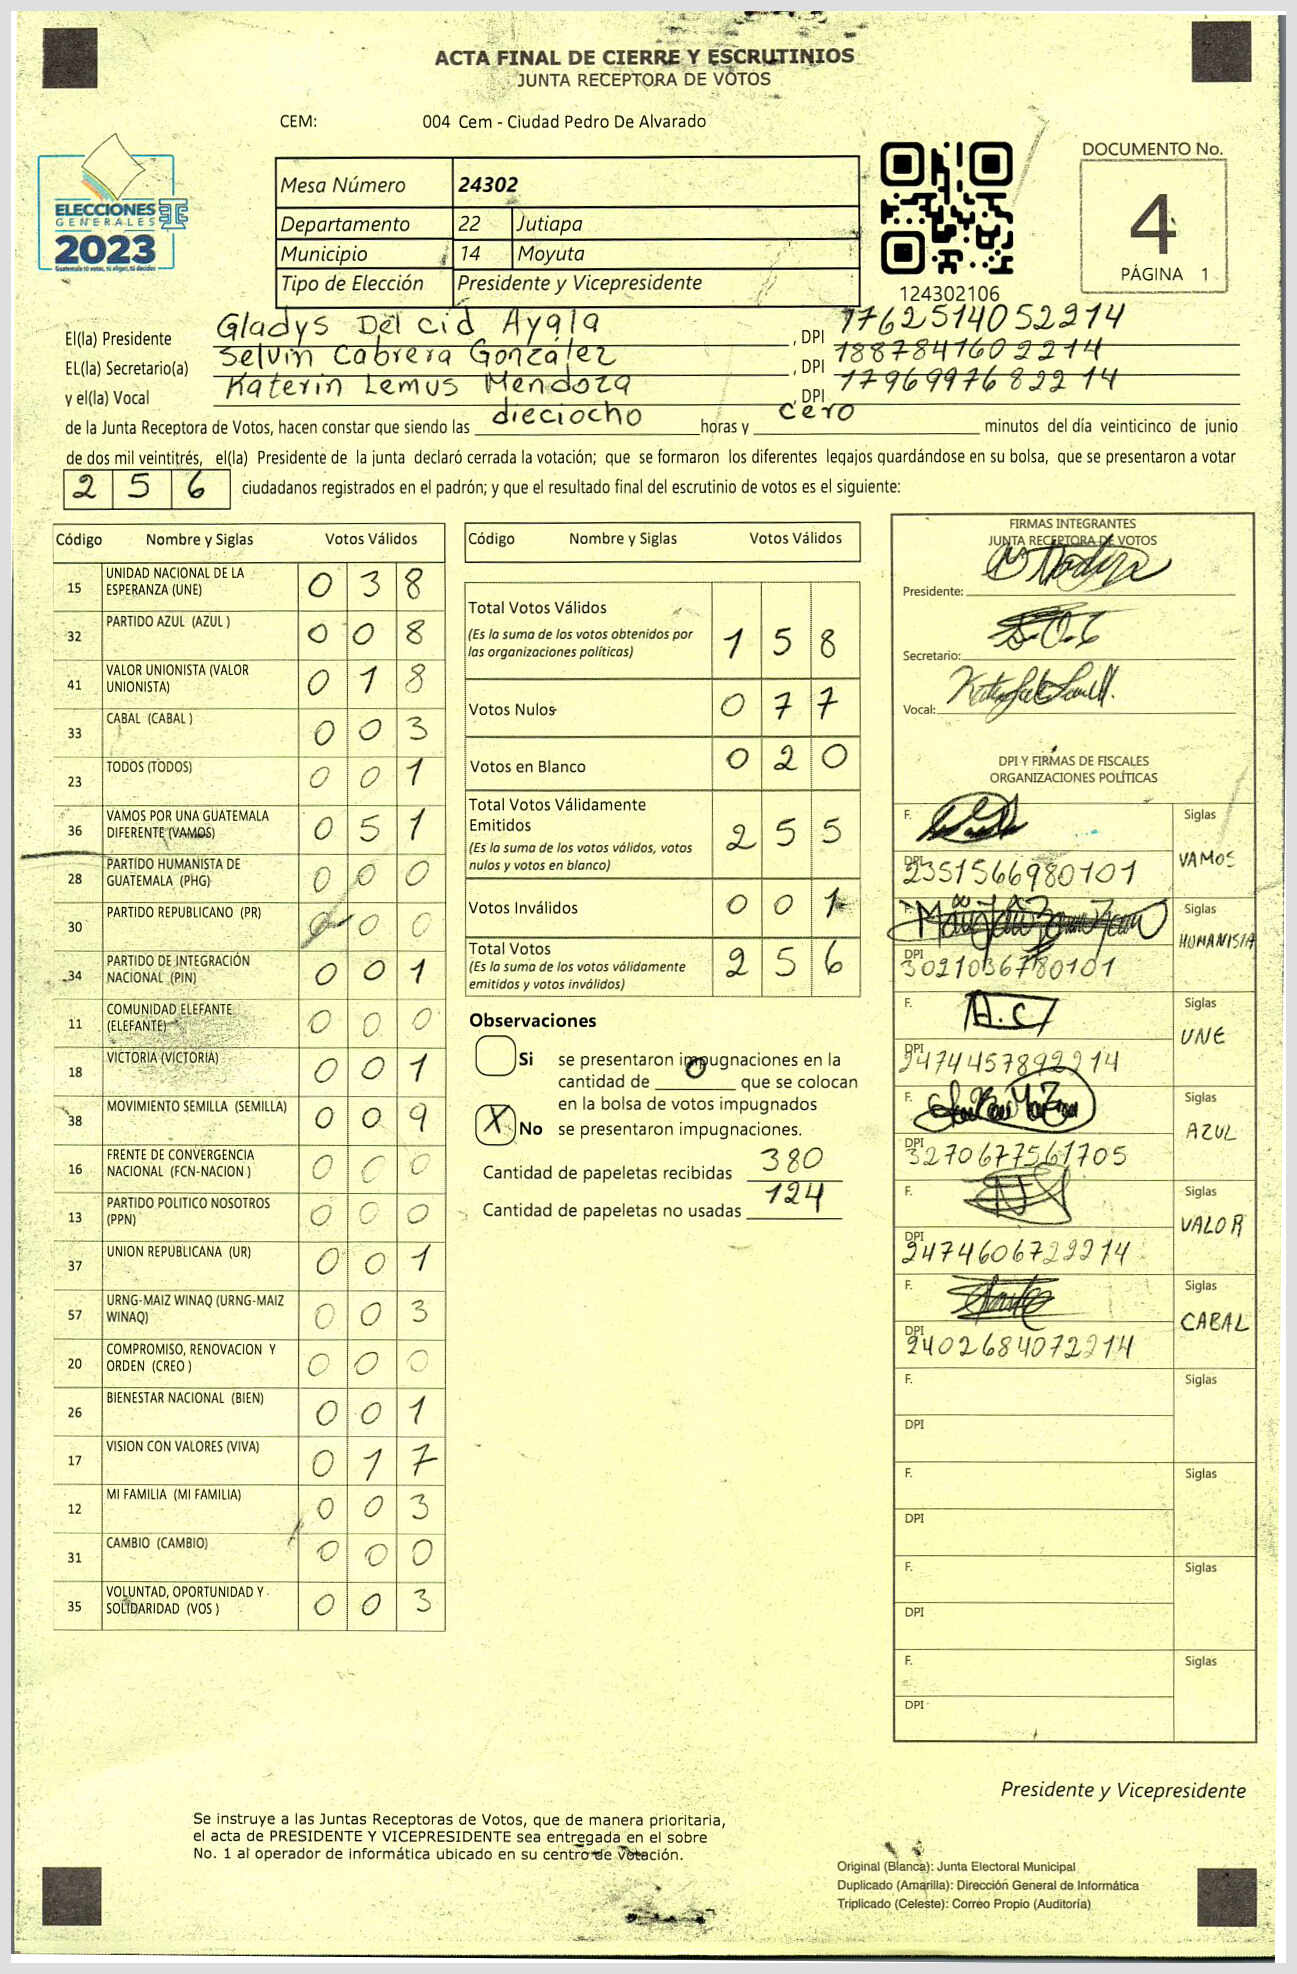 ACTA FINAL DE CIERRE Y ESCRUTINIOS
JUNTA RECEPTORA DE VOTOS
CEM: 004 Cem - Ciudad Pedro De Alvarado
ELECCIONES
GENERALES
2023
Guatemala tú votas, tú eliges, tú decides
Mesa Número 24302
Departamento 22 Jutiapa
Municipio 14 Moyuta
Tipo de Elección Presidente y Vicepresidente
124302106
DOCUMENTO No.
4
PÁGINA 1
El(la) Presidente Gladys Del cid Ayala , DPI 1762514052214
EL(la) Secretario(a) Selvin Cabrera González , DPI 1887841602214
y el(la) Vocal Katerin Lemus Mendoza , DPI 1796997682214
de la Junta Receptora de Votos, hacen constar que siendo las dieciocho horas y cero minutos del día veinticinco de junio
de dos mil veintitrés, el(la) Presidente de la junta declaró cerrada la votación; que se formaron los diferentes legajos quardándose en su bolsa, que se presentaron a votar
2 5 6 ciudadanos registrados en el padrón; y que el resultado final del escrutinio de votos es el siguiente:
Código Nombre y Siglas Votos Válidos
15 UNIDAD NACIONAL DE LA ESPERANZA (UNE) 0 3 8
32 PARTIDO AZUL (AZUL ) 0 0 8
41 VALOR UNIONISTA (VALOR UNIONISTA) 0 1 8
33 CABAL (CABAL ) 0 0 3
23 TODOS (TODOS) 0 0 1
36 VAMOS POR UNA GUATEMALA DIFERENTE (VAMOS) 0 5 1
28 PARTIDO HUMANISTA DE GUATEMALA (PHG) 0 0 0
30 PARTIDO REPUBLICANO (PR) 0 0 0
34 PARTIDO DE INTEGRACIÓN NACIONAL (PIN) 0 0 1
11 COMUNIDAD ELEFANTE (ELEFANTE) 0 0 0
18 VICTORIA (VICTORIA) 0 0 1
38 MOVIMIENTO SEMILLA (SEMILLA) 0 0 9
16 FRENTE DE CONVERGENCIA NACIONAL (FCN-NACION ) 0 0 0
13 PARTIDO POLITICO NOSOTROS (PPN) 0 0 0
37 UNION REPUBLICANA (UR) 0 0 1
57 URNG-MAIZ WINAQ (URNG-MAIZ WINAQ) 0 0 3
20 COMPROMISO, RENOVACION Y ORDEN (CREO ) 0 0 0
26 BIENESTAR NACIONAL (BIEN) 0 0 1
17 VISION CON VALORES (VIVA) 0 1 7
12 MI FAMILIA (MI FAMILIA) 0 0 3
31 CAMBIO (CAMBIO) 0 0 0
35 VOLUNTAD, OPORTUNIDAD Y SOLIDARIDAD (VOS ) 0 0 3
Código Nombre y Siglas Votos Válidos
Total Votos Válidos
(Es la suma de los votos obtenidos por
las organizaciones politicas) 1 5 8
Votos Nulos 0 7 7
Votos en Blanco 0 2 0
Total Votos Válidamente
Emitidos 2 5 5
(Es la suma de los votos válidos, votos
nulos y votos en blanco)
Votos Inválidos 0 0 1
Total Votos
(Es la suma de los votos válidamente
emitidos y votos inválidos) 2 5 6
Observaciones
Si se presentaron impugnaciones en la
cantidad de 0 que se colocan
en la bolsa de votos impugnados
X No se presentaron impugnaciones.
Cantidad de papeletas recibidas 380
Cantidad de papeletas no usadas 124
FIRMAS INTEGRANTES
JUNTA RECEPTORA DE VOTOS
Presidente:
Secretario:
Vocal:
DPI Y FIRMAS DE FISCALES
ORGANIZACIONES POLÍTICAS
F. Siglas
DPI 2351566980101 VAMOS
F. Siglas
DPI 3021036780101 HUMANISTA
F. A.C Siglas
DPI 2474457892214 UNE
F. Siglas
DPI 3270677561705 AZUL
F. Siglas
DPI 2474606722214 VALOR
F. Siglas
DPI 2402684072214 CABAL
F. Siglas
DPI
F. Siglas
DPI
F. Siglas
DPI
F. Siglas
DPI
Presidente y Vicepresidente
Se instruye a las Juntas Receptoras de Votos, que de manera prioritaria,
el acta de PRESIDENTE Y VICEPRESIDENTE sea entregada en el sobre
No. 1 al operador de informática ubicado en su centro de votación.
Original (Blanca): Junta Electoral Municipal
Duplicado (Amarilla): Dirección General de Informática
Triplicado (Celeste): Correo Propio (Auditoría)